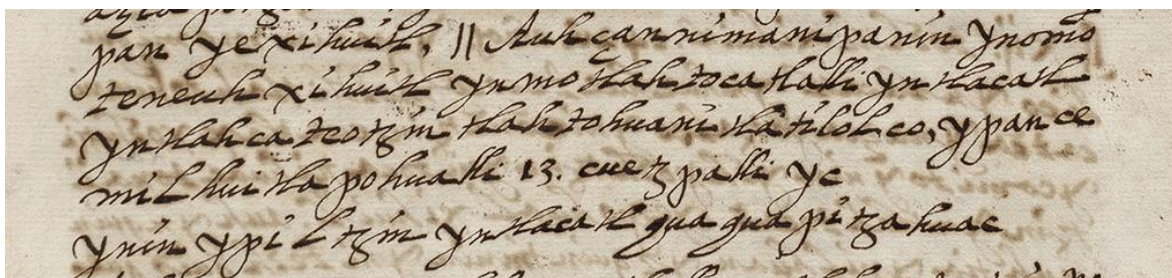 pan yexihuitl, || Auh çannimanipanin ynomo
teneuh xihuitl ynmotlahtocatlalli yntlacatl
yntlahcateotzin tlahtohuani tlatilolco, ypan ce
milhuitlapohualli 13. cuetzpalli ye
ynin ypiltzin yntlacatl quaquapitzahuac